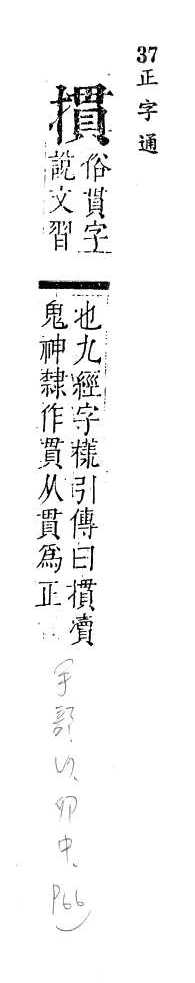 37正字通
摜
俗貫字
說文習
也九經字樣引傳曰摜瀆
鬼神隸作貫从貫爲正
手部.卯中.P66